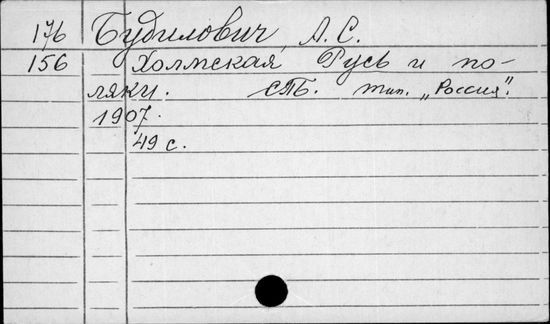 176 Будилович, А. С.
156 Холмская Русь и по-
ляки. СПб. тип. „Россия".
1907.
49 с.